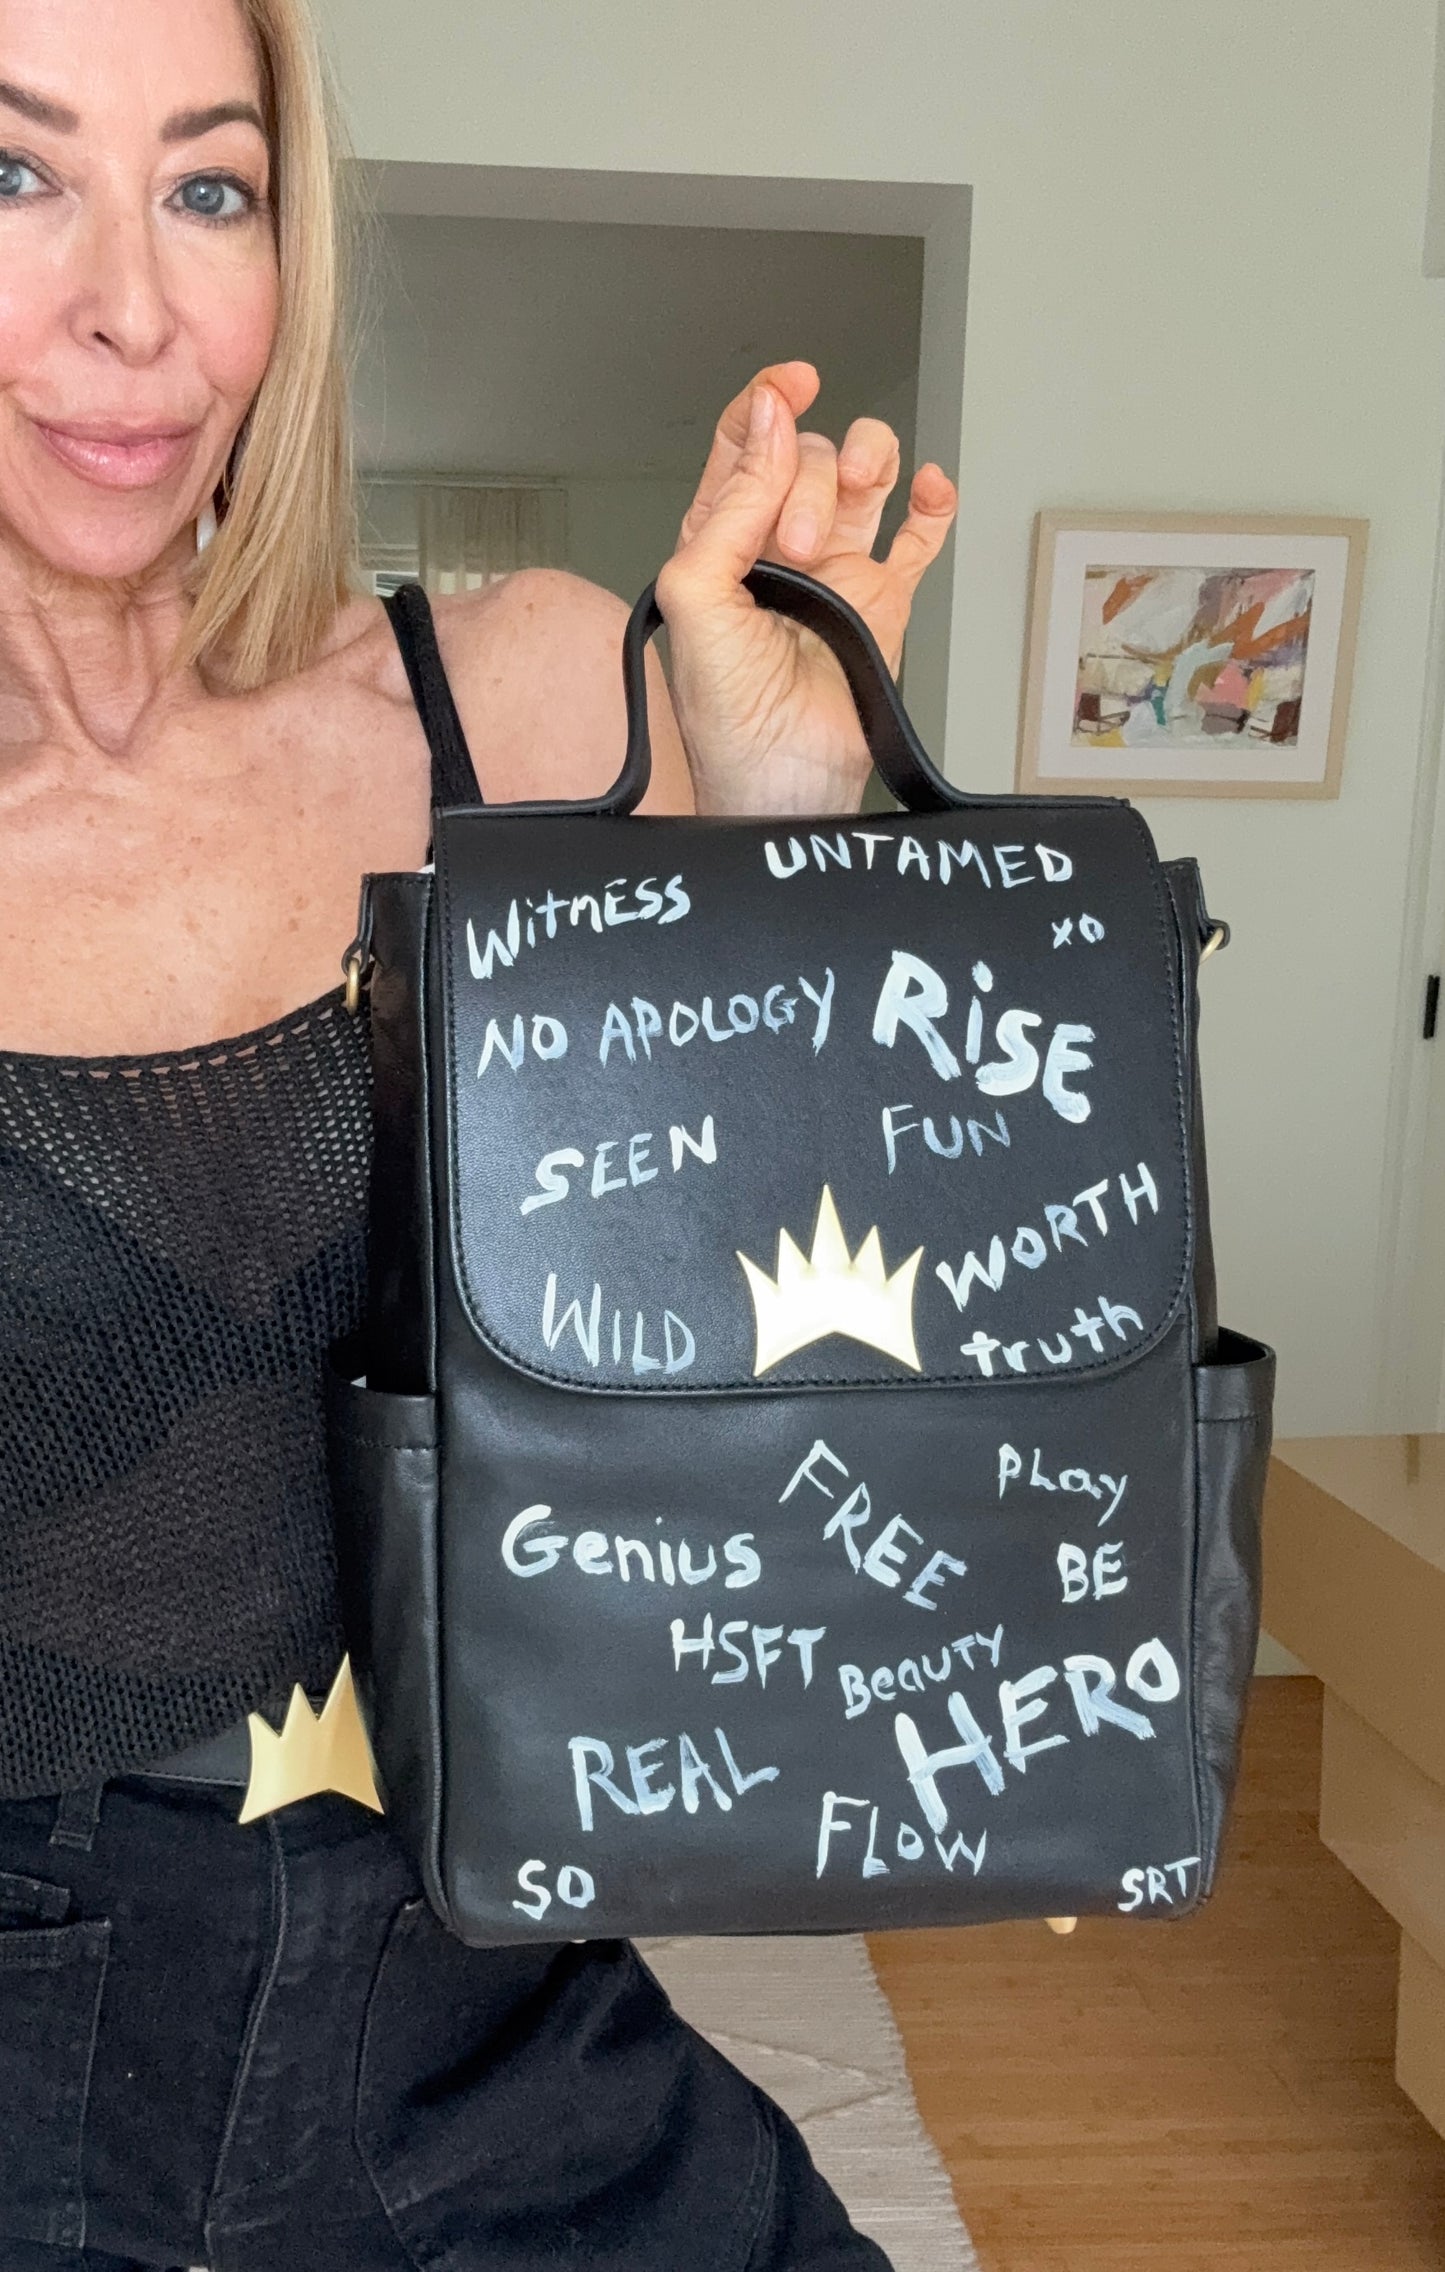 UNTAMED
WitnESS
xo
NO APOLOGY
RiSE
SEEN
FUN
WORTH
WILD
truth
PLay
FREE
Genius
BE
HSFT
BeauTY
HERO
REAL
FLOW
SO
SRT